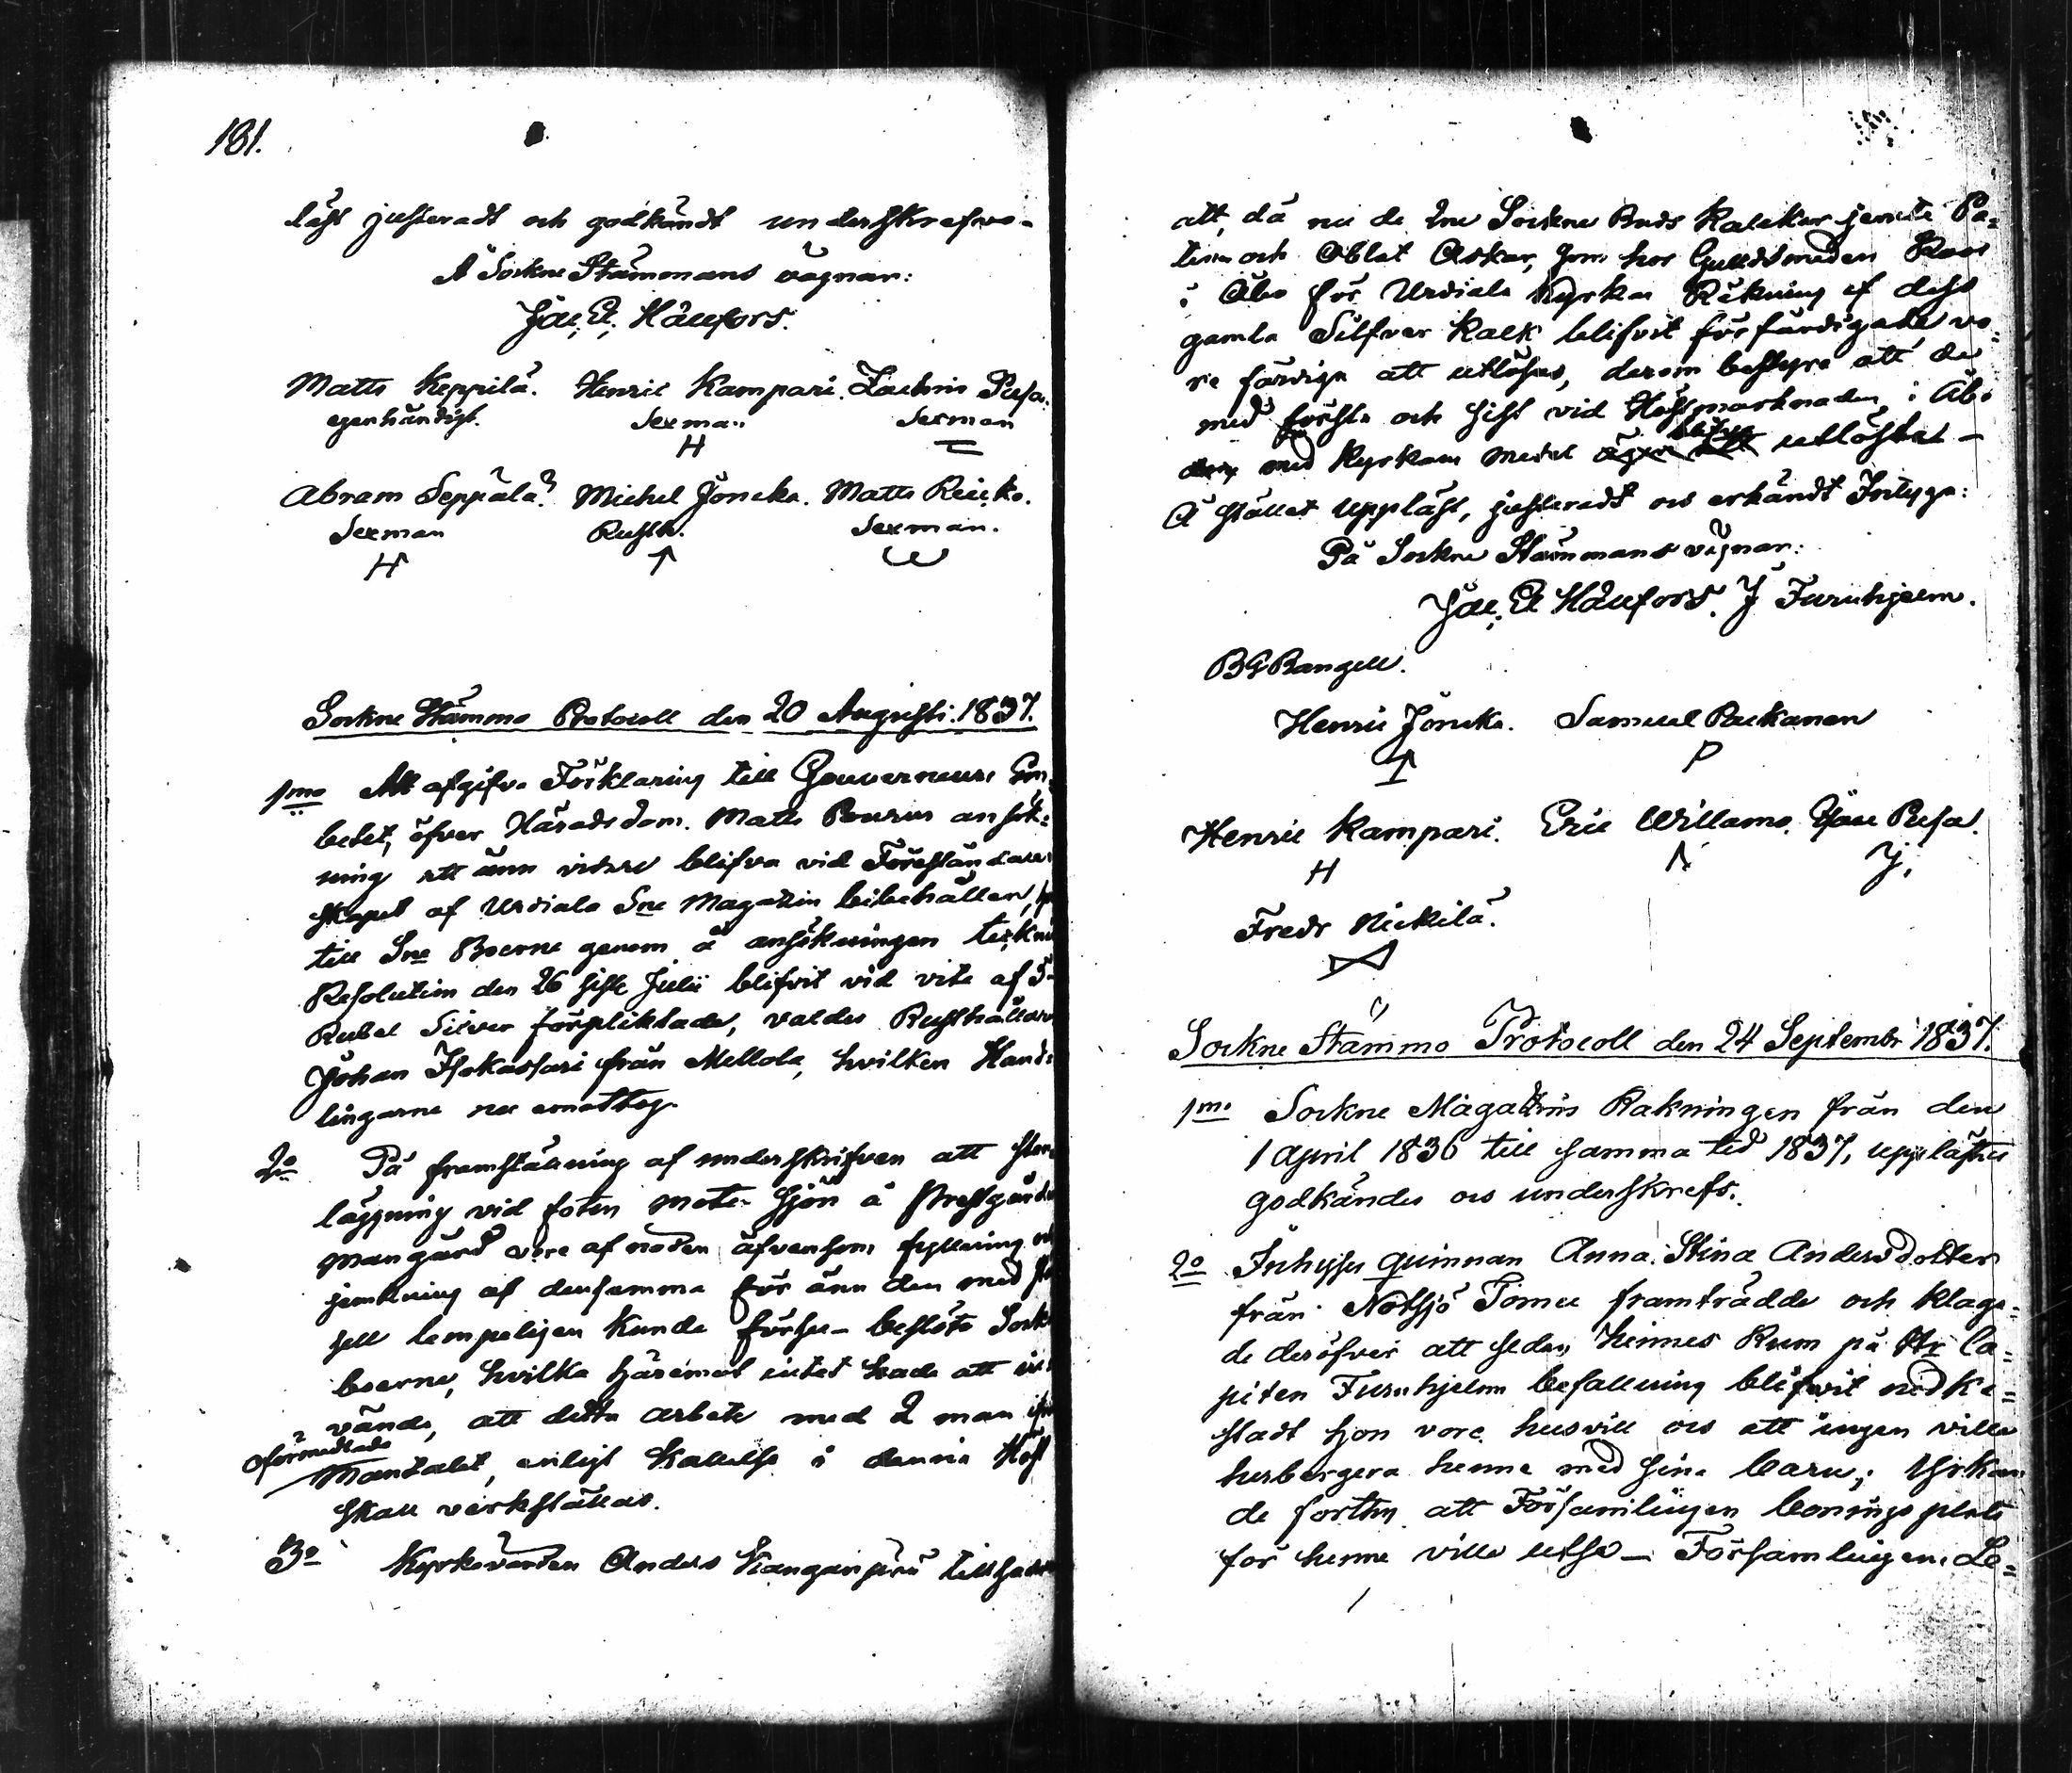 181.
läst justeradt och godkändt underskrefvo -
Å Sockne Stämmans vägnar:
Jac. E. Hällfors.
Matts Keppilä. Henric Kampari. Zachris Pusa.
egenhändigt. Sexman Sexman
H
Abram Seppälä Michel Jöncka. Matts Reicko.
Sexman Rusth. Sexman.
H
Sockne Stämmo Protocoll den 20 Augusti. 1837.
1mo Att afgifva Förklaring till Gouverneurs Em-
betet, öfver Häradsdom. Matts Pourus ansök-
ning att änn vidare blifva vid Föreståndare
skapet af Urdiala Sne Magazin bibehållen,
till Sne Boerne genom å ansökningen teckn
Resolution den 26 siste Julii blifvit vid vite af 5
Rubel Silver förpliktade, valdes Rusthållaren
Johan Isokassari från Mellola, hvilken Hand-
lingarne nu emottog.
2o På framställning af underskrifven att sten
läggning vid foten mote sjön å Prestgårds
mangård vore af nöden äfvensom fyllning och
jemkning af densamma för änn den med
sell lempeligen kunde förses - beslöto Sockne
boerne, hvilka häremot intet hade att in-
vända, att detta arbete med 2 man ifrån
oförmedlade
Mantalet, enligt kallelse i denna Höst
skall verkställas.
3o Kyrkovärden Anders Kanganpää tillsades
att, då nu de 2ne Sockne Buds Kalckar jemte Pa-
tenn och Oblat Askar, som hos Guldsmeden Roos
i Åbo för Urdiala Kyrkas Räkning af dess
gamla Silfver Kalk blifvit förfärdigade vo-
re färdiga att utlösas, derom bestyra att de
med första och sist vid Höstmarknaden i Åbo
med Kyrkans medel blifva utlösta -
På stället uppläst, justeradt ock erkändt Intyga:
På Sockne Stämmans vägnar:
Jac. E Hällfors. J Furuhjelm.
BGBangell.
Henric Jöncka. Samuel Packanen
P
Henric Kampari. Eric Willamo. Isac Pusa.
H J.
Fredr Nickilä.
Sockne Stämmo Protocoll den 24 Septembr 1837.
1mo Sockne Magazins Räkningen från den
1 April 1836 till samma tid 1837, upplästes
godkändes ock underskrefs.
2o Inhyses quinnan Anna Stina Andersdotter
från Notsjö Tomu framträdde och klaga-
de deröfver att sedan hennes Rum på Hr Ca-
piten Furuhjelms befallning blifvit nedka-
stadt hon vore husvill ock att ingen ville
herbergera henne med sina barn; Yrkan
de förthy att Församlingen bonings plats
för henne ville utse - Församlingens Le-